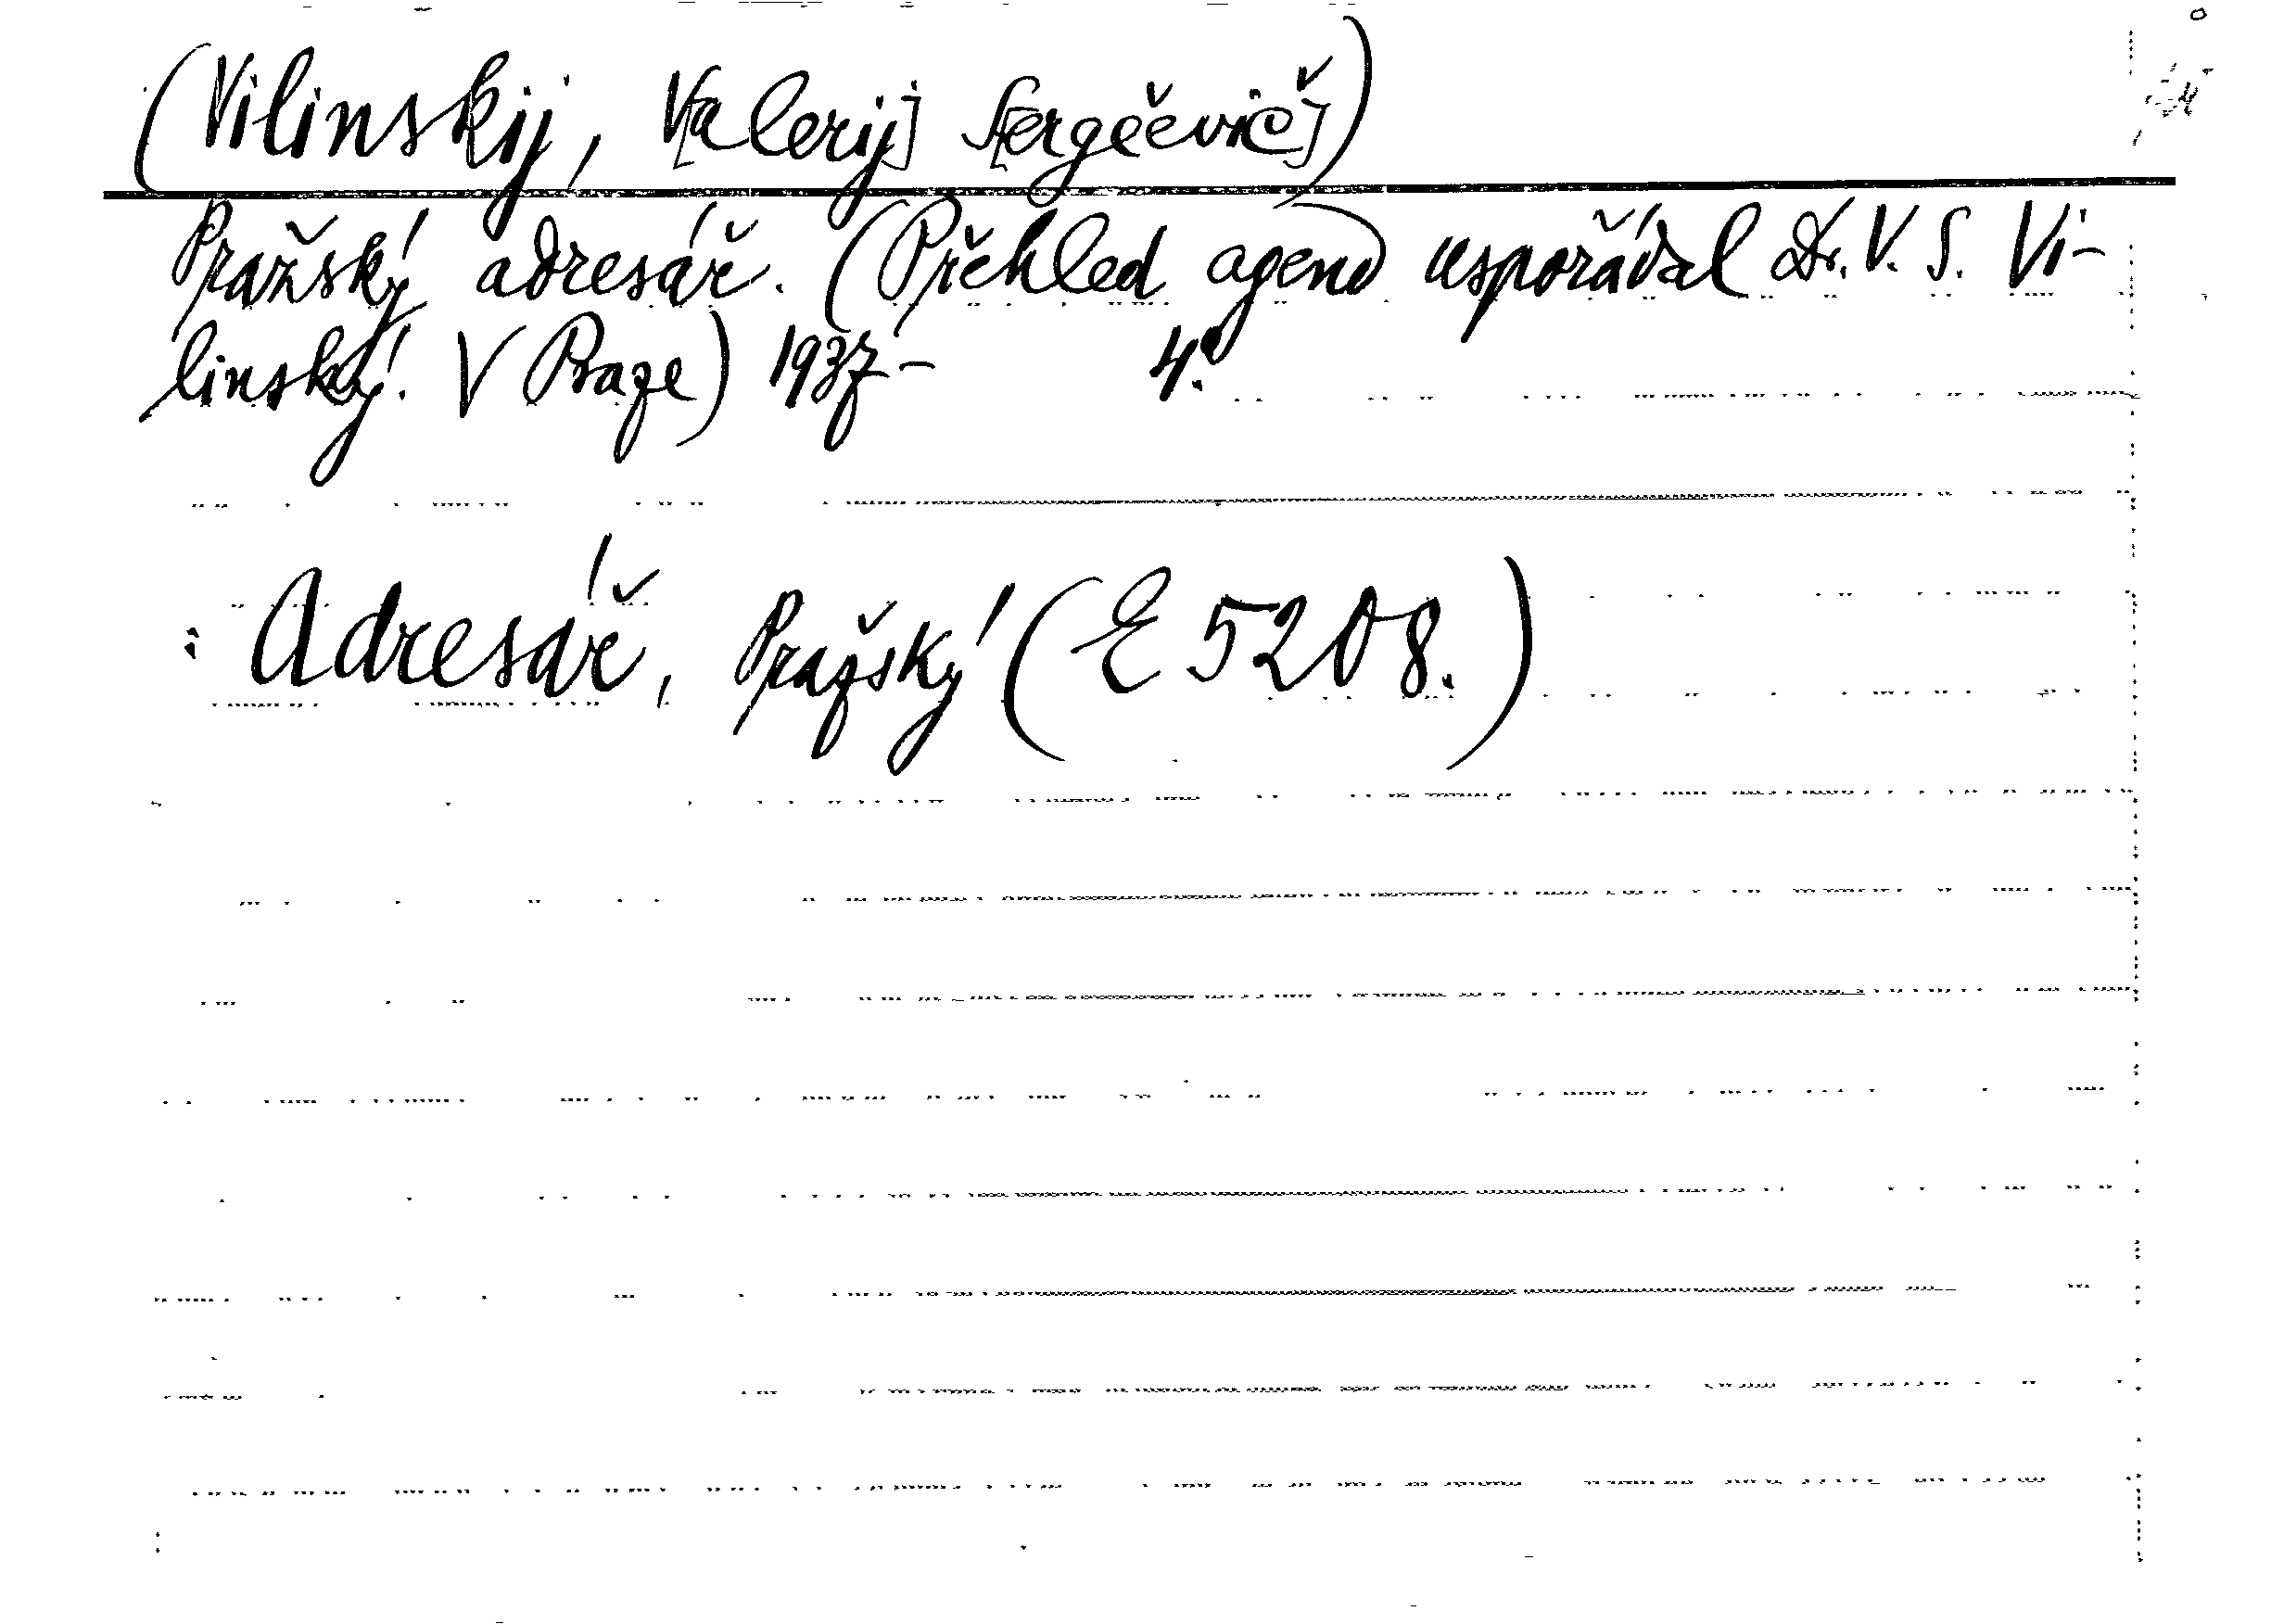 (Vilinskij, V[alerij] S[ergěevič])
Pražský adresář. (Přehled agend uspořádal Dr. V. S. Vi-
linský. V Praze) 1937- 4.°
: Adresář, Pražský (E 5208.)